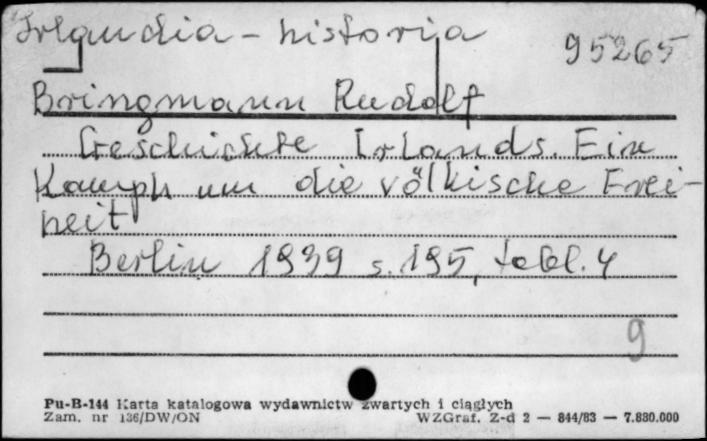 Irlandia - historia
95265
Bringmann Rudolf
Geschichte Irlands. Ein
Kampf um die völkische Frei-
heit
Berlin 1939 s. 195, tabl. 4
9
Pu-B-144 Karta katalogowa wydawnictw zwartych i ciągłych
Zam. nr 136/DW/ON WZGraf. Z-d 2 — 844/83 — 7.880.000